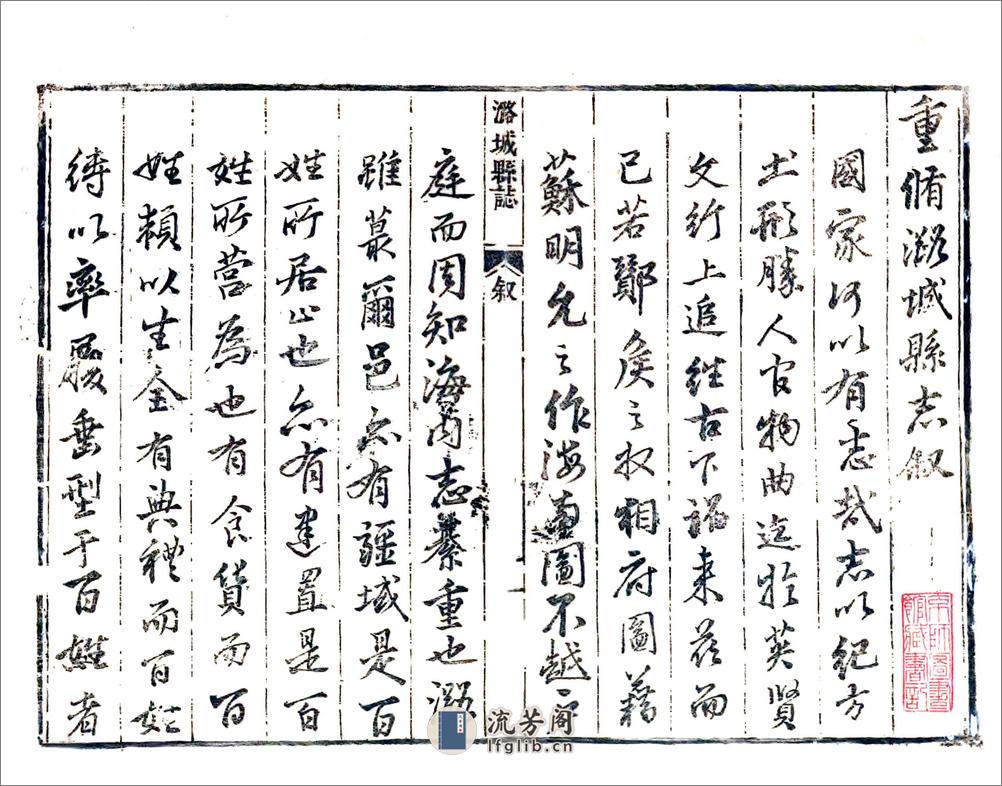 重脩潞城縣志叙
國家何以有志哉志以紀方
土形勝人官物曲迄於英賢
文行上追往古下裕來茲而
已若鄼侯之收相府圖籍
蘇明允之作海圖不越户
庭而周知海內志綦重也潞
雖蕞爾邑亦有疆域是百
姓所居止也亦有建置是百
姓所營為也有食貨而百
姓賴以生全有典禮而百姓
待以率履垂型于百姓者
潞城縣誌
叙
流芳阁
lfglib.cn